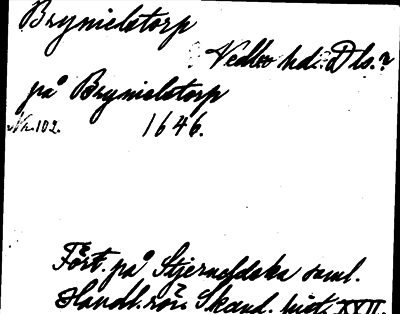 Brynielstorp
Vedbo hd. Dls.?
på Brynielstorp
Nr. 102. 1646.
Fört. på Stjerneldska saml.
Handl. rör. Skand. hist. XVII.